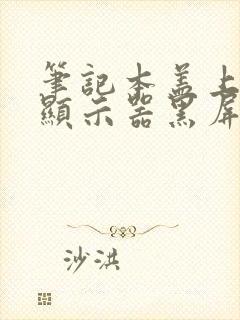 筆記本盖上
顯示器黑屏
沙洪